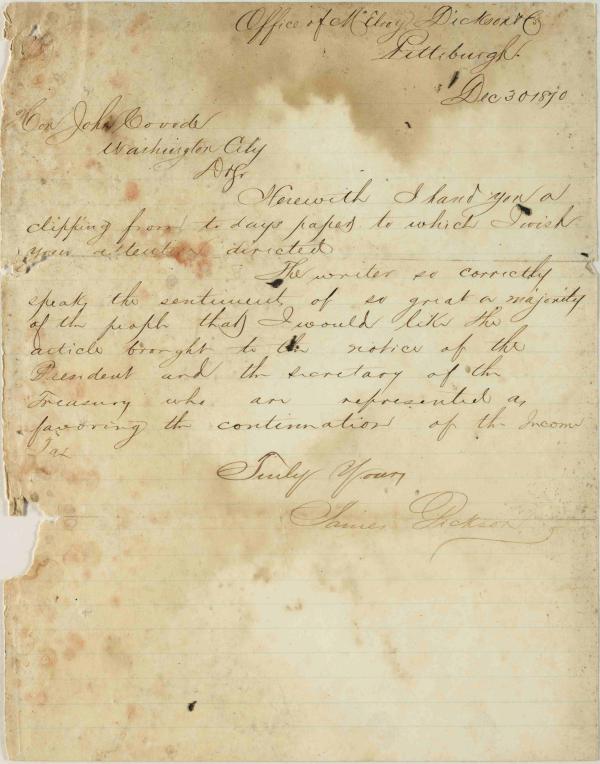 Office of McElroy Dickson & Co
Pittsburgh.
Dec 30 1870
Hon John Covode
Washington City
D Sir
Herewith I hand you a
clipping from to days paper to which I wish
your attention directed
The writer so correctly
speaks the sentiments of so great a majority
of the people that I would like the
article brought to the notice of the
President and the secretary of the
Treasury who are represented as
favoring the continuation of the Income
Tax
Truly Yours
James Dickson